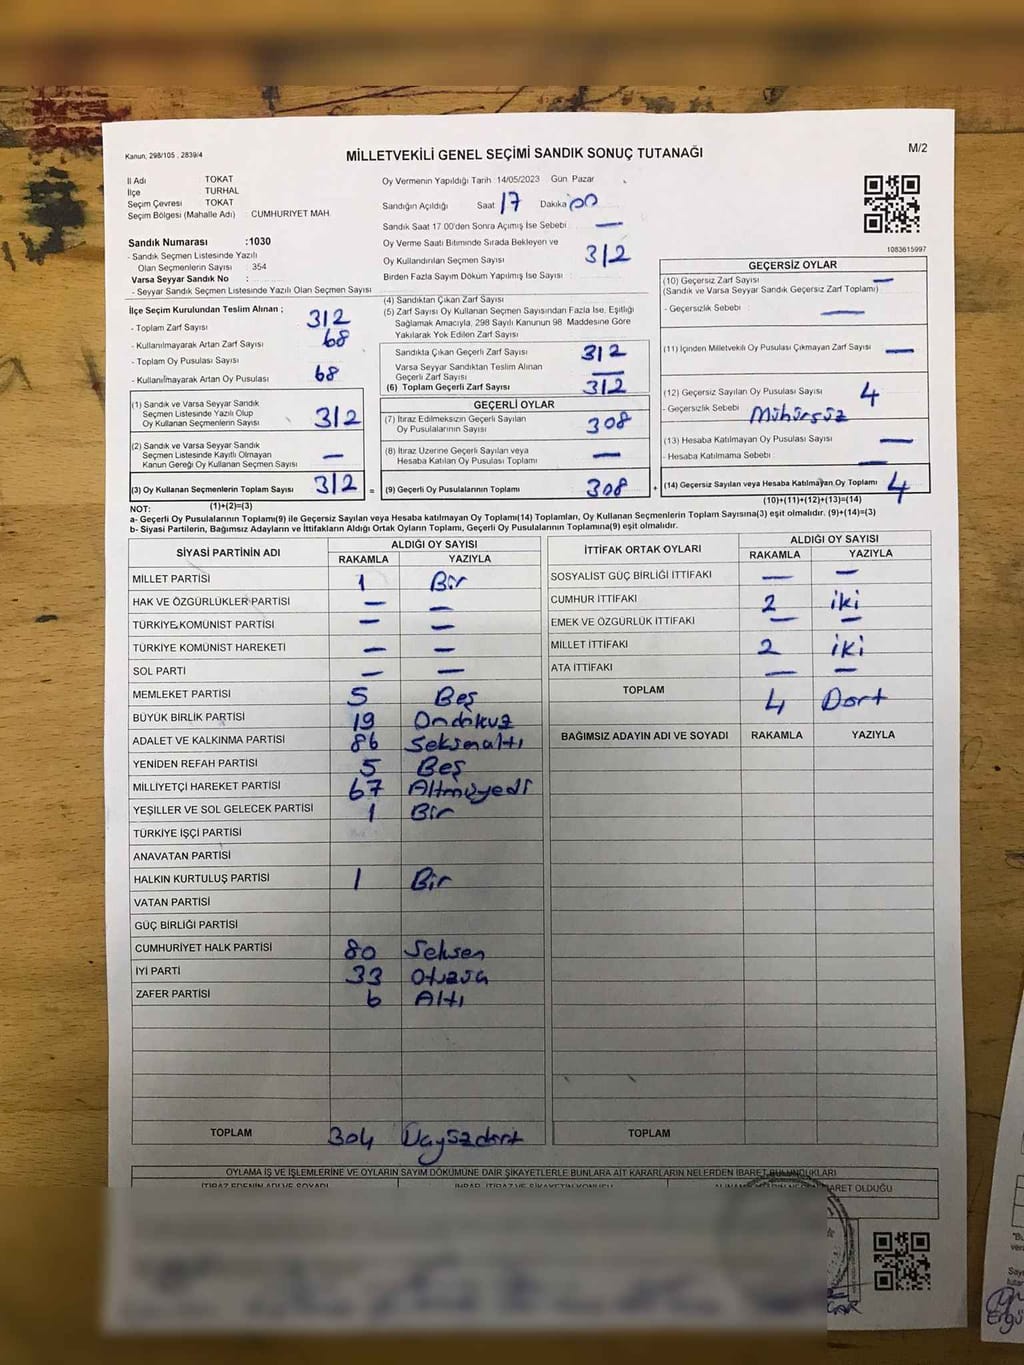 Kanun, 298/105 , 2839/4
MİLLETVEKİLİ GENEL SEÇİMİ SANDIK SONUÇ TUTANAĞI
M/2
İl Adı TOKAT
İlçe TURHAL
Seçim Çevresi TOKAT
Seçim Bölgesi (Mahalle Adı) : CUMHURIYET MAH.
Sandık Numarası :1030
- Sandık Seçmen Listesinde Yazılı
Olan Seçmenlerin Sayısı : 354
Varsa Seyyar Sandık No :
- Seyyar Sandık Seçmen Listesinde Yazılı Olan Seçmen Sayısı
Oy Vermenin Yapıldığı Tarih 14/05/2023 Gün Pazar
Sandığın Açıldığı Saat 17 Dakika 00
Sandık Saat 17.00'den Sonra Açılmış İse Sebebi —
Oy Verme Saati Bitiminde Sırada Bekleyen ve
Oy Kullandırılan Seçmen Sayısı 312
Birden Fazla Sayım Döküm Yapılmış İse Sayısı
1083615997
İlçe Seçim Kurulundan Teslim Alınan ;
- Toplam Zarf Sayısı 312
- Kullanılmayarak Artan Zarf Sayısı 68
- Toplam Oy Pusulası Sayısı
- Kullanılmayarak Artan Oy Pusulası 68
(1) Sandık ve Varsa Seyyar Sandık
Seçmen Listesinde Yazılı Olup
Oy Kullanan Seçmenlerin Sayısı 312
(2) Sandık ve Varsa Seyyar Sandık
Seçmen Listesinde Kayıtlı Olmayan
Kanun Gereği Oy Kullanan Seçmen Sayısı —
(3) Oy Kullanan Seçmenlerin Toplam Sayısı 312 =
(1)+(2)=(3)
(4) Sandıktan Çıkan Zarf Sayısı
(5) Zarf Sayısı Oy Kullanan Seçmen Sayısından Fazla İse, Eşitliği
Sağlamak Amacıyla, 298 Sayılı Kanunun 98. Maddesine Göre
Yakılarak Yok Edilen Zarf Sayısı
Sandıkta Çıkan Geçerli Zarf Sayısı 312
Varsa Seyyar Sandıktan Teslim Alınan
Geçerli Zarf Sayısı —
(6) Toplam Geçerli Zarf Sayısı 312
GEÇERLİ OYLAR
(7) İtiraz Edilmeksizin Geçerli Sayılan
Oy Pusulalarının Sayısı 308
(8) İtiraz Üzerine Geçerli Sayılan veya
Hesaba Katılan Oy Pusulası Toplamı —
(9) Geçerli Oy Pusulalarının Toplamı 308 +
GEÇERSİZ OYLAR
(10) Geçersiz Zarf Sayısı —
(Sandık ve Varsa Seyyar Sandık Geçersiz Zarf Toplamı)
- Geçersizlik Sebebi : —
(11) İçinden Milletvekili Oy Pusulası Çıkmayan Zarf Sayısı —
(12) Geçersiz Sayılan Oy Pusulası Sayısı 4
- Geçersizlik Sebebi Mühürsüz
(13) Hesaba Katılmayan Oy Pusulası Sayısı —
- Hesaba Katılmama Sebebi : —
(14) Geçersiz Sayılan veya Hesaba Katılmayan Oy Toplamı 4
(10)+(11)+(12)+(13)=(14)
NOT:
a- Geçerli Oy Pusulalarının Toplamı(9) ile Geçersiz Sayılan veya Hesaba katılmayan Oy Toplamı(14) Toplamları, Oy Kullanan Seçmenlerin Toplam Sayısına(3) eşit olmalıdır. (9)+(14)=(3)
b- Siyasi Partilerin, Bağımsız Adayların ve İttifakların Aldığı Ortak Oyların Toplamı, Geçerli Oy Pusulalarının Toplamına(9) eşit olmalıdır.
SİYASİ PARTİNİN ADI ALDIĞI OY SAYISI
RAKAMLA YAZIYLA
MİLLET PARTİSİ 1 Bir
HAK VE ÖZGÜRLÜKLER PARTİSİ — —
TÜRKİYE KOMÜNİST PARTİSİ — —
TÜRKİYE KOMÜNİST HAREKETİ — —
SOL PARTİ — —
MEMLEKET PARTİSİ 5 Beş
BÜYÜK BİRLİK PARTİSİ 19 Ondokuz
ADALET VE KALKINMA PARTİSİ 86 Seksenaltı
YENİDEN REFAH PARTİSİ 5 Beş
MİLLİYETÇİ HAREKET PARTİSİ 67 Altmışyedi
YEŞİLLER VE SOL GELECEK PARTİSİ 1 Bir
TÜRKİYE İŞÇİ PARTİSİ
ANAVATAN PARTİSİ
HALKIN KURTULUŞ PARTİSİ 1 Bir
VATAN PARTİSİ
GÜÇ BİRLİĞİ PARTİSİ
CUMHURİYET HALK PARTİSİ 80 Seksen
İYİ PARTİ 33 Otuzüç
ZAFER PARTİSİ 6 Altı
TOPLAM 304 Üçyüzdört
İTTİFAK ORTAK OYLARI ALDIĞI OY SAYISI
RAKAMLA YAZIYLA
SOSYALİST GÜÇ BİRLİĞİ İTTİFAKI — —
CUMHUR İTTİFAKI 2 iki
EMEK VE ÖZGÜRLÜK İTTİFAKI — —
MİLLET İTTİFAKI 2 iki
ATA İTTİFAKI — —
TOPLAM 4 Dört
BAĞIMSIZ ADAYIN ADI VE SOYADI RAKAMLA YAZIYLA
TOPLAM
OYLAMA İŞ VE İŞLEMLERİNE VE OYLARIN SAYIM DÖKÜMÜNE DAİR ŞİKAYETLERLE BUNLARA AİT KARARLARIN NELERDEN İBARET BULUNDUKLARI
İTİRAZ EDENİN ADI VE SOYADI